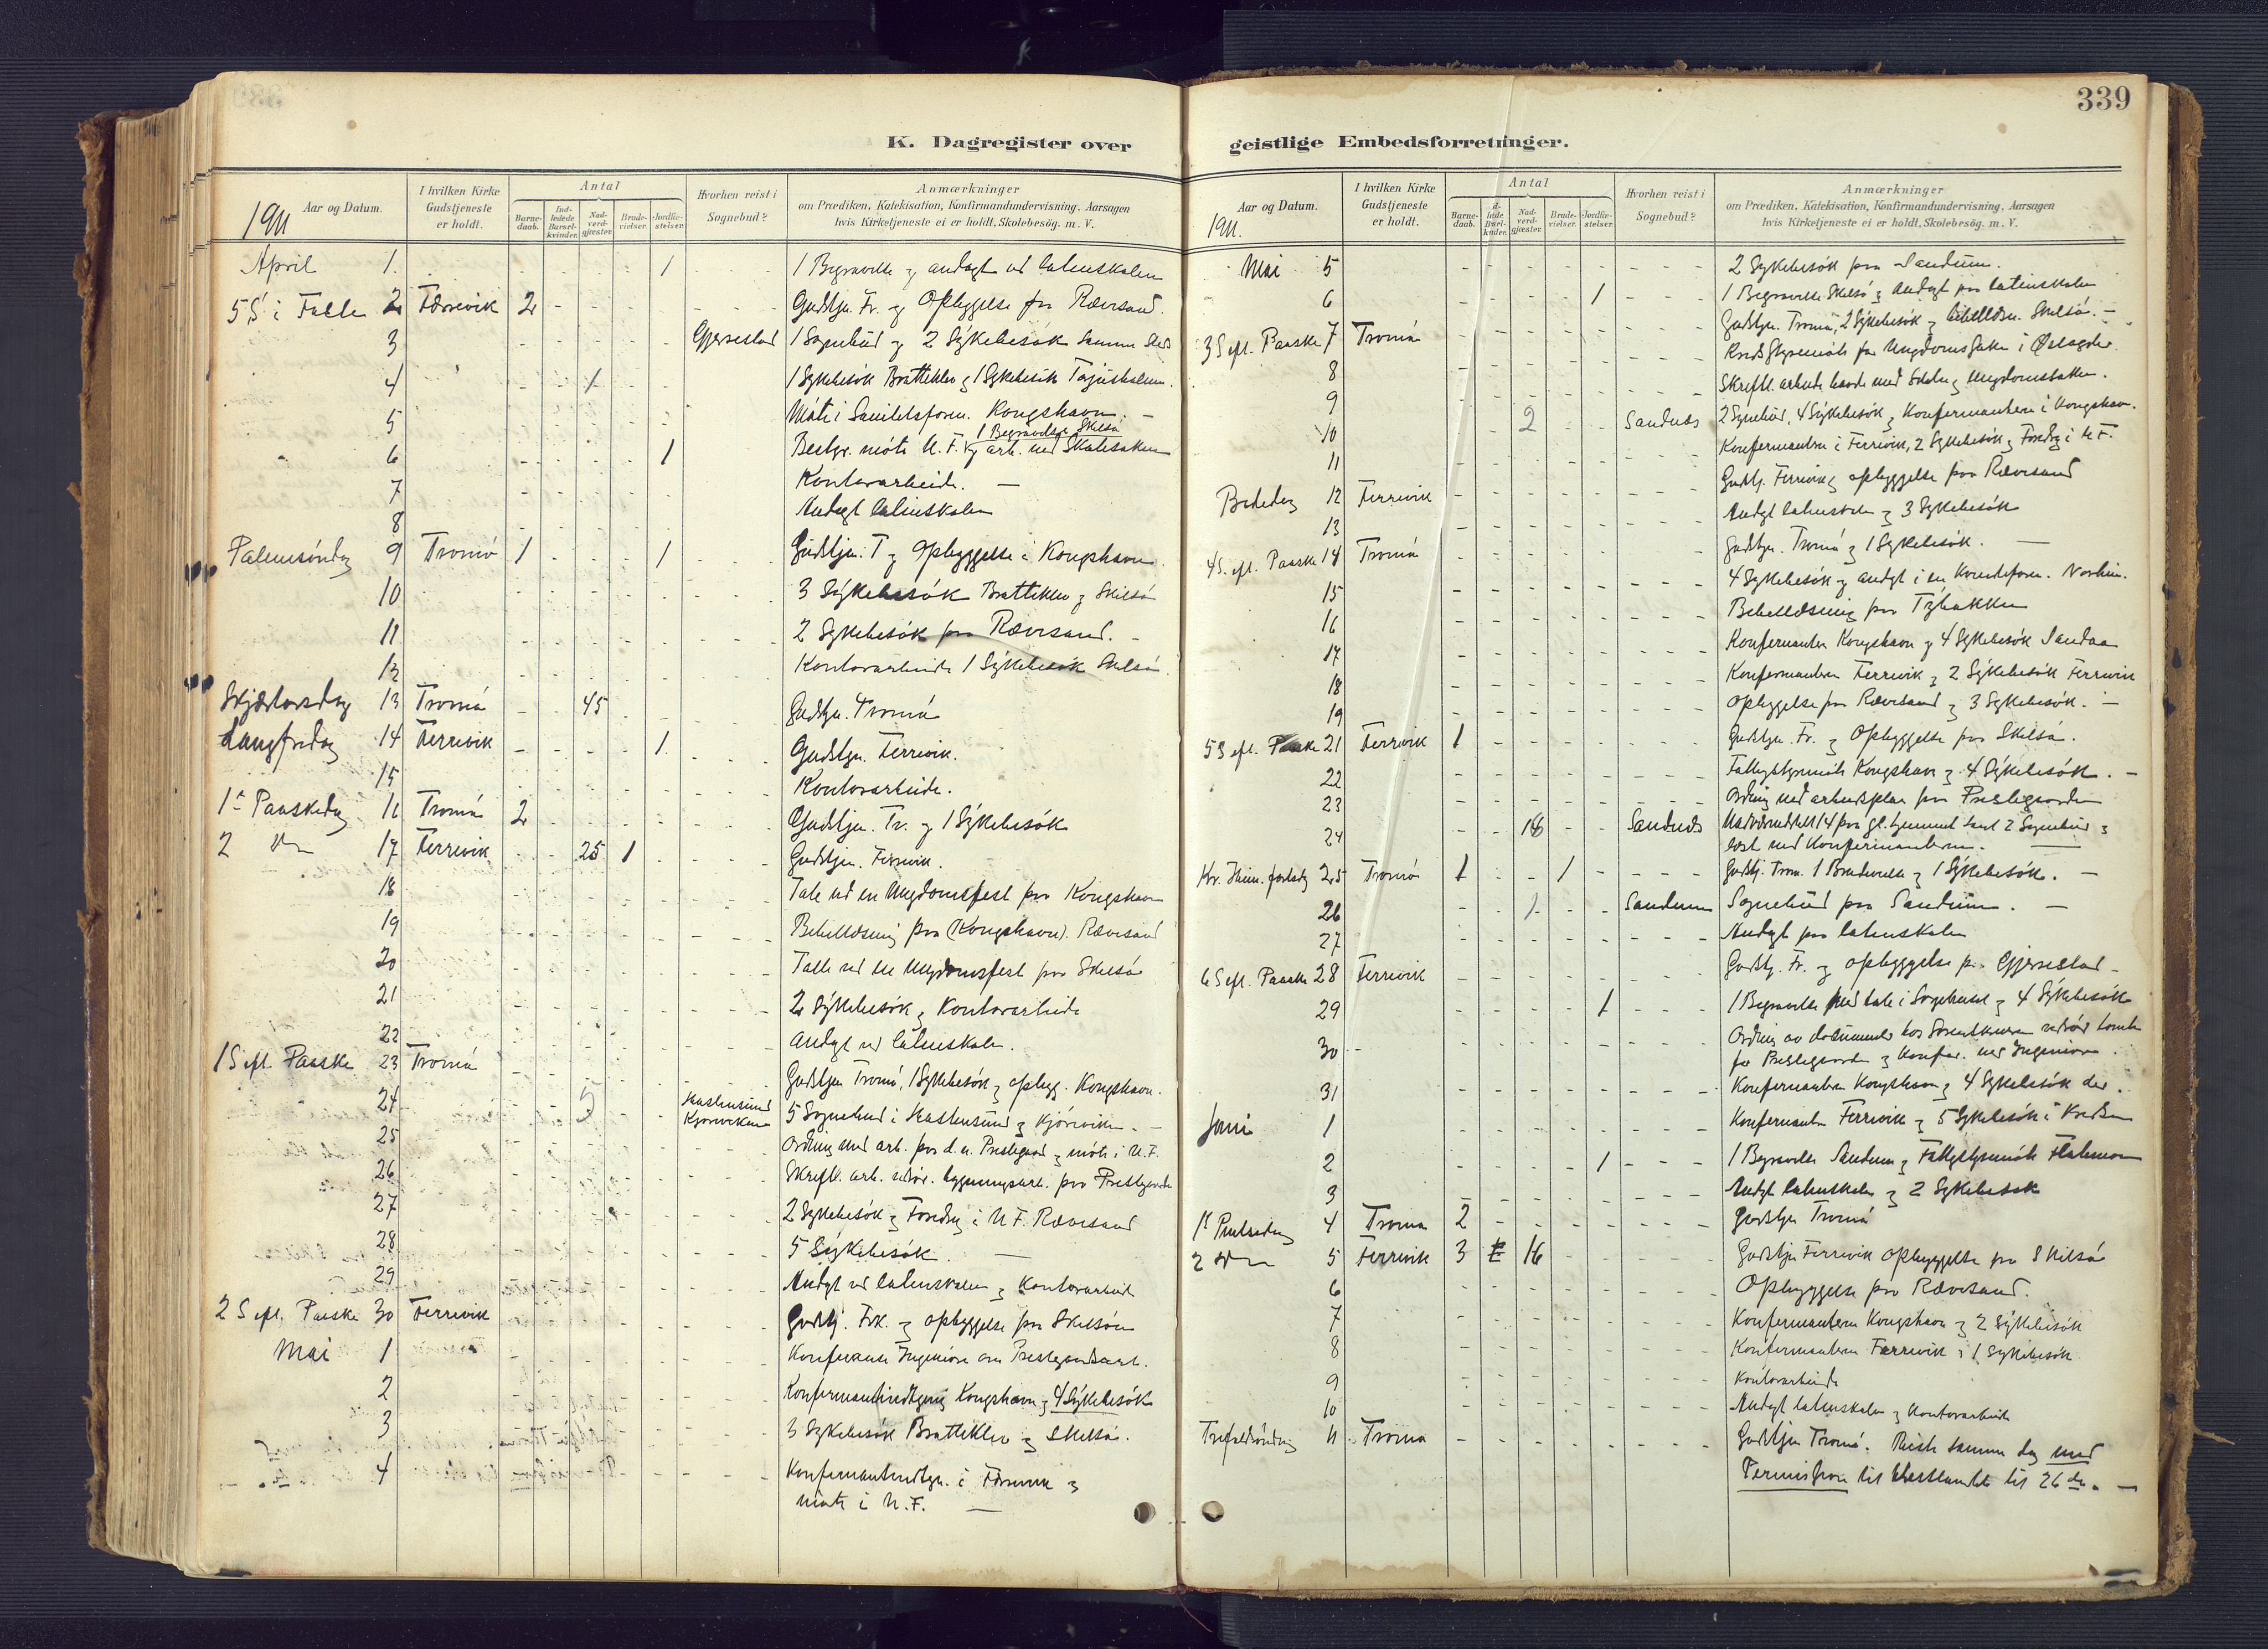 339
K. Dagregister over geistlige Embedsforretninger.
1911 Aar og Datum. I hvilken Kirke Gudstjeneste er holdt. Antal Barnedaab. Indledede Barselkvinder. Nadverdgjæster. Brudevielser. Jordfæstelser. Hvorhen reist i Sognebud? Anmærkninger om Prædiken, Katekisation, Konfirmandundervisning, Aarsagen hvis Kirketjeneste ei er holdt, Skolebesög. m. V.
April 1. 1 1 Begravelse og andagt ved latinskolen
5 S. i Faste 2 Færevik 2 Gudstjn. Fr. og Opbyggelse paa Rævesand.
3 Gjerrestad 1 Sognebud og 2 Sykebesøk samme Sted
4 1 1 Sykebesøk Bratteklev og 1 Sykebesøk
5 Møte i Kongshavn. –
6 1 møte U. F. og arb. med 1 Begravelse Skilsø
7 Kontorarbeide. –
8 Andagt latinskolen
Palmesøndag 9 Tromø 1 1 Gudstjn. T og Opbyggelse i Kongshavn.
10 3 Sykebesøk Bratteklev og Skilsø
11 2 Sykebesøk paa Rævesand. –
12 Kontorarbeide 1 Sykebesøk Skilsø
Skjærtorsdag 13 Tromø 45 Gudstjn. Tromø
Langfredag 14 Færrevik 1 Gudstjn. Ferrevik.
15 Kontorarbeide.
1ste Paaskedag 16 Tromø 2 Gudstjn. Tr. og 1 Sykebesøk
2 " 17 Ferrevik 25 1 Gudstjn. Ferrevik.
18 Tale ved en Ungdomsfest paa Kongshavn
19 Bibellæsning paa (Kongshavn). Rævesand
20 Tale ved en Ungdomsfest paa Skilsø
21 2 Sykebesøk og Kontorarbeide
22 Andagt ved latinskolen.
1 S eft. Paaske 23 Tromø Gudstjn Tromø, 1 Sykebesøk og opbygg. Kongshavn.
24 5 5 Sognebud i
25 Ordning med arb. paa d. n. Prestegaard og møte i U.F.
26 Skriftl. arb. vedrør. bygningsarb. paa Prestegaarden
27 2 Sykebesøk og Foredrag i U F. Rævesand
28 5 Sykebesøk. –
29 Andagt ved latinskolen og Kontorarbeid
2 S eft. Paaske 30 Ferrevik Gudstj. Frk. og opbyggelse paa Skilsøen
Mai 1 Konferanse Ingeniøren om Prestegaardsarb.
2 Konfirmantindtegning Kongshavn og 4 Sykebesøk
3 3 Sykebesøk Bratteklev og Skilsø.
4 Konfirmantindtgn. i Færevik og
møte i U. F. –
1911. Aar og Datum. I hvilken Kirke Gudstjeneste er holdt. Antal Barnedaab. Nadverdgjæster. Brudevielser. Jordfæstelser. Hvorhen reist i Sognebud? Anmærkninger om Prædiken, Katekisation, Konfirmandundervisning, Aarsagen hvis Kirketjeneste ei er holdt, Skolebesög. m. V.
Mai 5 2 Sykebesøk paa Sandum.
6 1 1 Begravelse Skilsø og Andagt paa latinskolen
3 S eft. Paaske 7 Tromø Gudstjn. Tromø, 2 Sykebesøk og bibellæsn. Skilsø. –
8 for Ungdomssaken i
9 Skriftl. arbeide og Ungdomssaken.
10 2 Sandnes 2 Sognebud, 4 Sykebesøk, Konfirmanterne i Kongshavn.
11 Konfirmanterne i Ferrevik, 2 Sykebesøk og Foredrag i U F.
Bededag 12 Ferrevik Gudstj. Ferrevik og opbyggelse paa Rævesand
13 Andagt latinskolen og 3 Sykebesøk
4 S. eft. Paaske 14 Tromø Gudstjn. Tromø og 1 Sykebesøk. –
15 4 Sykebesøk og andagt i en Kvindeforen.
16 Bibellæsning paa
17 Konfirmanter Kongshavn og 4 Sykebesøk
18 Konfirmanterne Ferrevik og 2 Sykebesøk Ferrevik
19 Opbyggelse paa Rævesand og 3 Sykebesøk. –
5 S eft. Paaske 21 Ferrevik 1 Gudstjn. Fr. og Opbyggelse paa Skilsø.
22 Fattigstyremøte Kongshavn og 4 Sykebesøk. –
23 Ordning med arbeidsplan paa Prestegaarden
24 16 Sandnes 14 paa gl. hjemmet samt 2 Sognebud og
læst med Konfirmanterne.
Kr. Him. fartsdag 25 Tromø 1 1 Gudstj. Trom. 1 Brudevielse og 1 Sykebesøk. –
26 1 Sandum Sognebud paa Sandum. –
27 Andagt paa latinskolen
6 S eft. Paaske 28 Ferrevik Gudstj. Fr. og opbyggelse p. Gjerrestad –
29 1 1 Begravelse med tale i Sørgehuset og 4 Sykebesøk
30 Ordning av dokumenter hos Sorenskriveren vedrør
for Prestegaarden og Konfer. med Ingeniøren.
31 Konfirmanterne Kongshavn og 4 Sykebesøk der.
Juni 1 Konfirmanter Ferrevik og 5 Sykebesøk i
2 1 1 Begravelse Sandum og Fattigstyremøte
3 Andagt latinskolen og 2 Sykebesøk
1ste Pintsedag 4 Tromø 2 Gudstjn Tromø
2 " 5 Ferrevik 3 16 Gudstjn Ferrevik opbyggelse paa Skilsø
6 Opbyggelse paa Rævesand.
7 Konfirmanterne Kongshavn og 2 Sykebesøk
8 Konfirmanterne Færrevik og 1 Sykebesøk
9 Kontorarbeide
10 Andagt latinskolen og Kontorarbeide
Trefoldsøndag 11 Tromø Gudstjn Tromø. Reiste samme dag med
Permission til Vestlandet til 26de. –